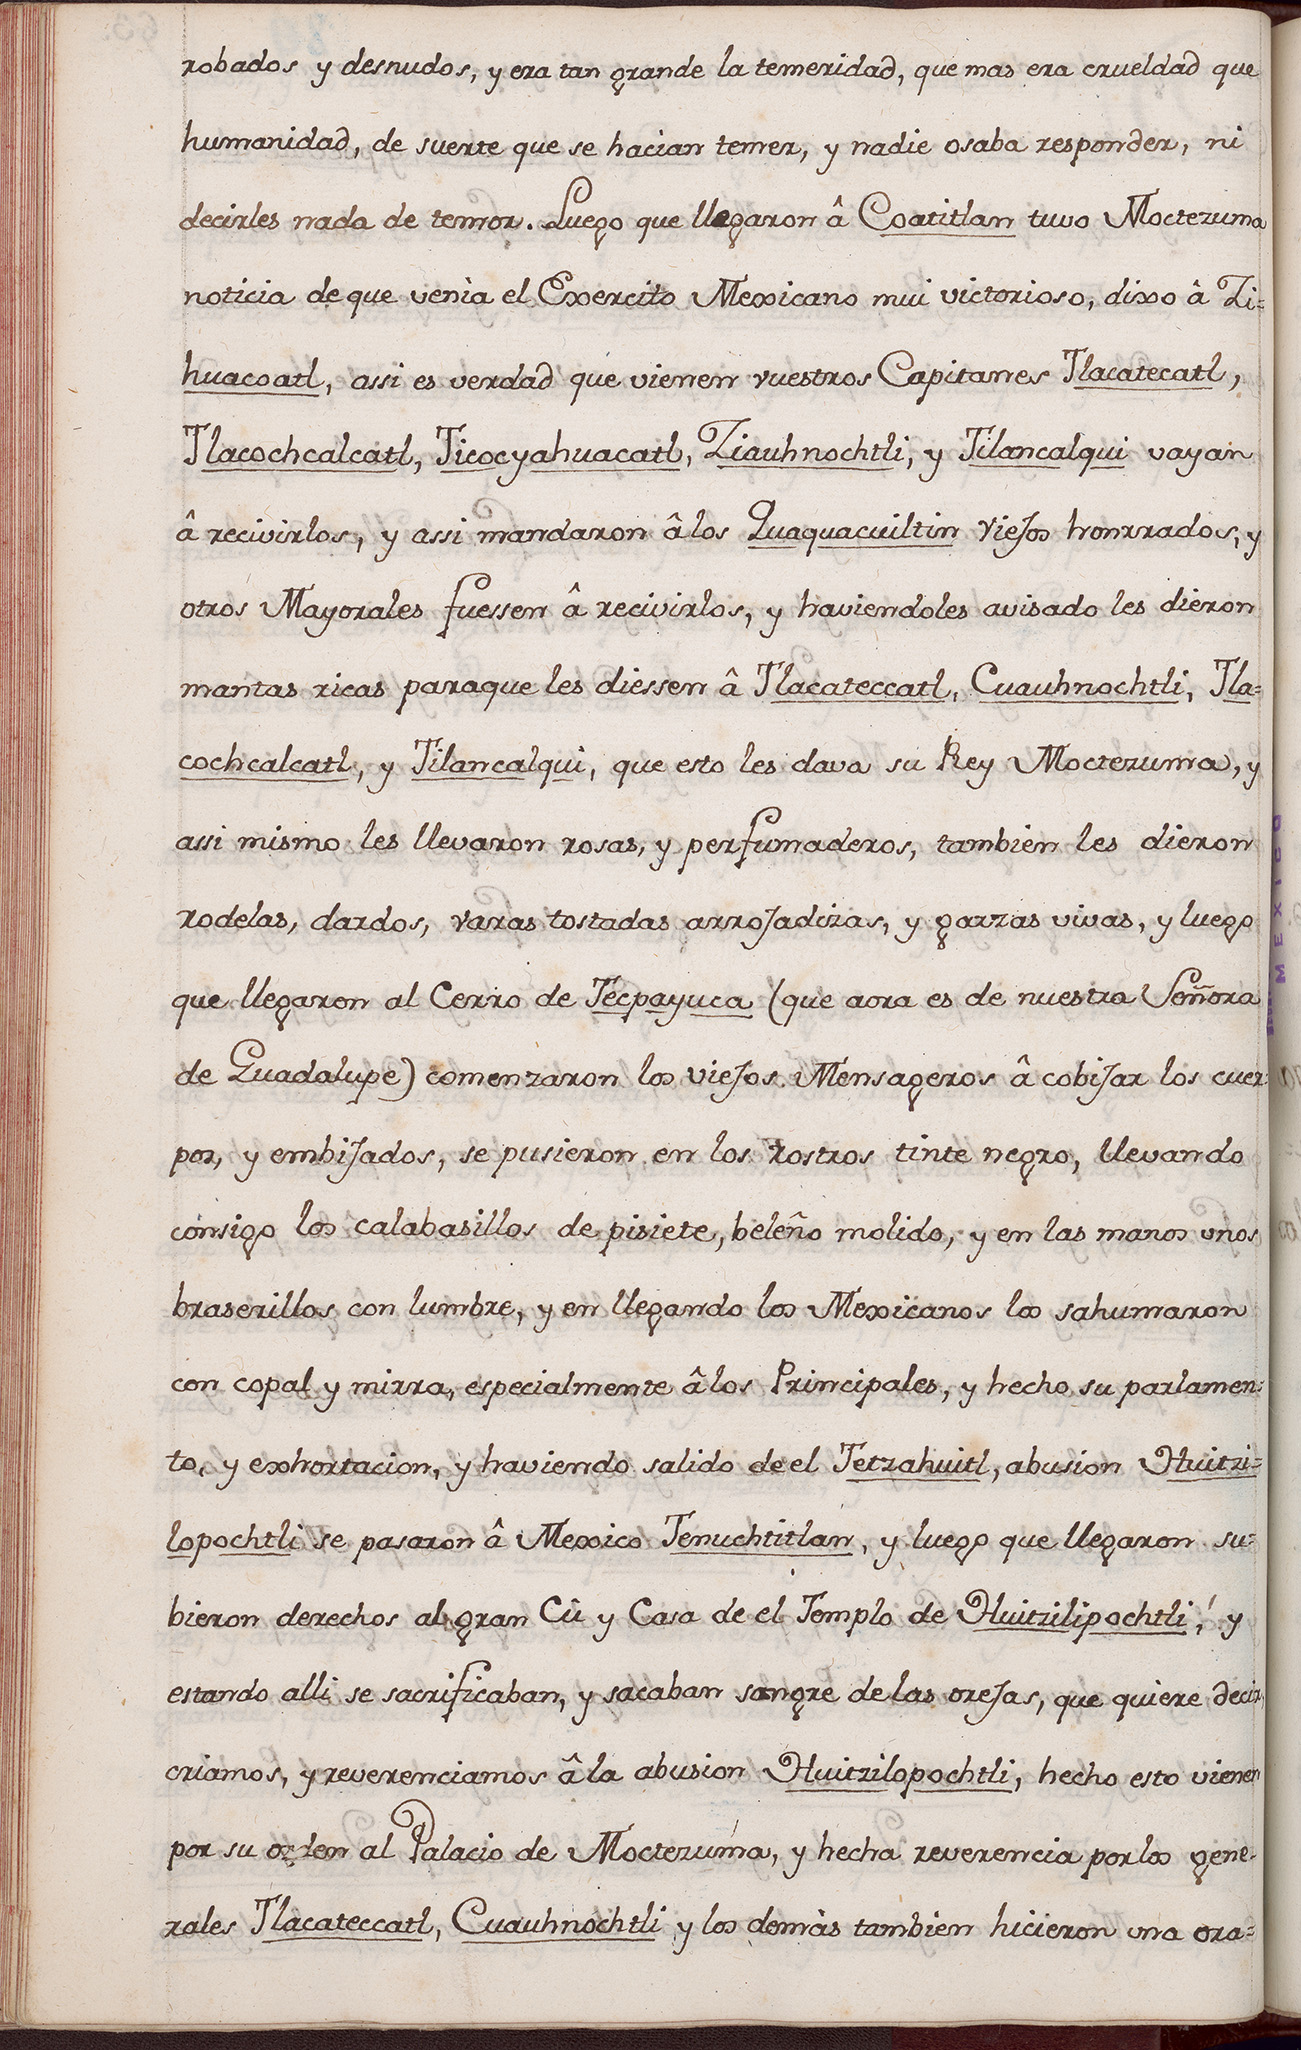 robados y desnudos, y era tan grande la temeridad, que mas era crueldad que
humanidad, de suerte que se hacian temer, y nadie osaba responder, ni
decirles nada de temor. Luego que llegaron â Coatitlan tuvo Moctezuma
noticia de que venìa el Exercito Mexicano mui victorioso, dixo â Zi=
huacoatl, assi es verdad que vienen vuestros Capitanes Tlacatecatl,
Tlacochcalcatl, Ticocyahuacatl, Ziauhnochtli, y Tilancalqui vayan
â recivirlos, y assi mandaron â los Quaquacuiltin viejos honrrados, y
otros Mayorales fuessen â recivirlos, y haviendoles avisado les dieron
mantas ricas paraque les diessen â Tlacateccatl, Cuauhnochtli, Tla=
cochcalcatl, y Tilancalqui, que esto les dava su Rey Moctezuma, y
assi mismo les llevaron rosas, y perfumaderos, tambien les dieron
rodelas, dardos, varas tostadas arrojadizas, y garzas vivas, y luego
que llegaron al Cerro de Tecpayuca (que aora es de nuestra Señora
de Guadalupe) comenzaron los viejos Mensageros â cobijar los cuer
pos, y embijados, se pusieron en los rostros tinte negro, llevando
consigo los calabasillos de pisiete, beleño molido, y en las manos unos
braserillos con lumbre, y en llegando los Mexicanos los sahumaron
con copal y mirra, especialmente â los Principales, y hecho su parlamen=
to, y exhortacion, y haviendo salido de el Tetzahuitl, abusion Huitzi=
lopochtli se pasaron â Mexico Tenuchtitlan, y luego que llegaron su=
bieron derechos al gran Cû y Casa de el Templo de Huitzilipochtli, y
estando alli se sacrificaban, y sacaban sangre de las orejas, que quiere decir,
criamos, y reverenciamos â la abusion Huitzilopochtli, hecho esto vienen
por su orden al Palacio de Moctezuma, y hecha reverencia por los gene=
rales Tlacateccatl, Cuauhnochtli y los demàs tambien hicieron una ora=
MEXICO